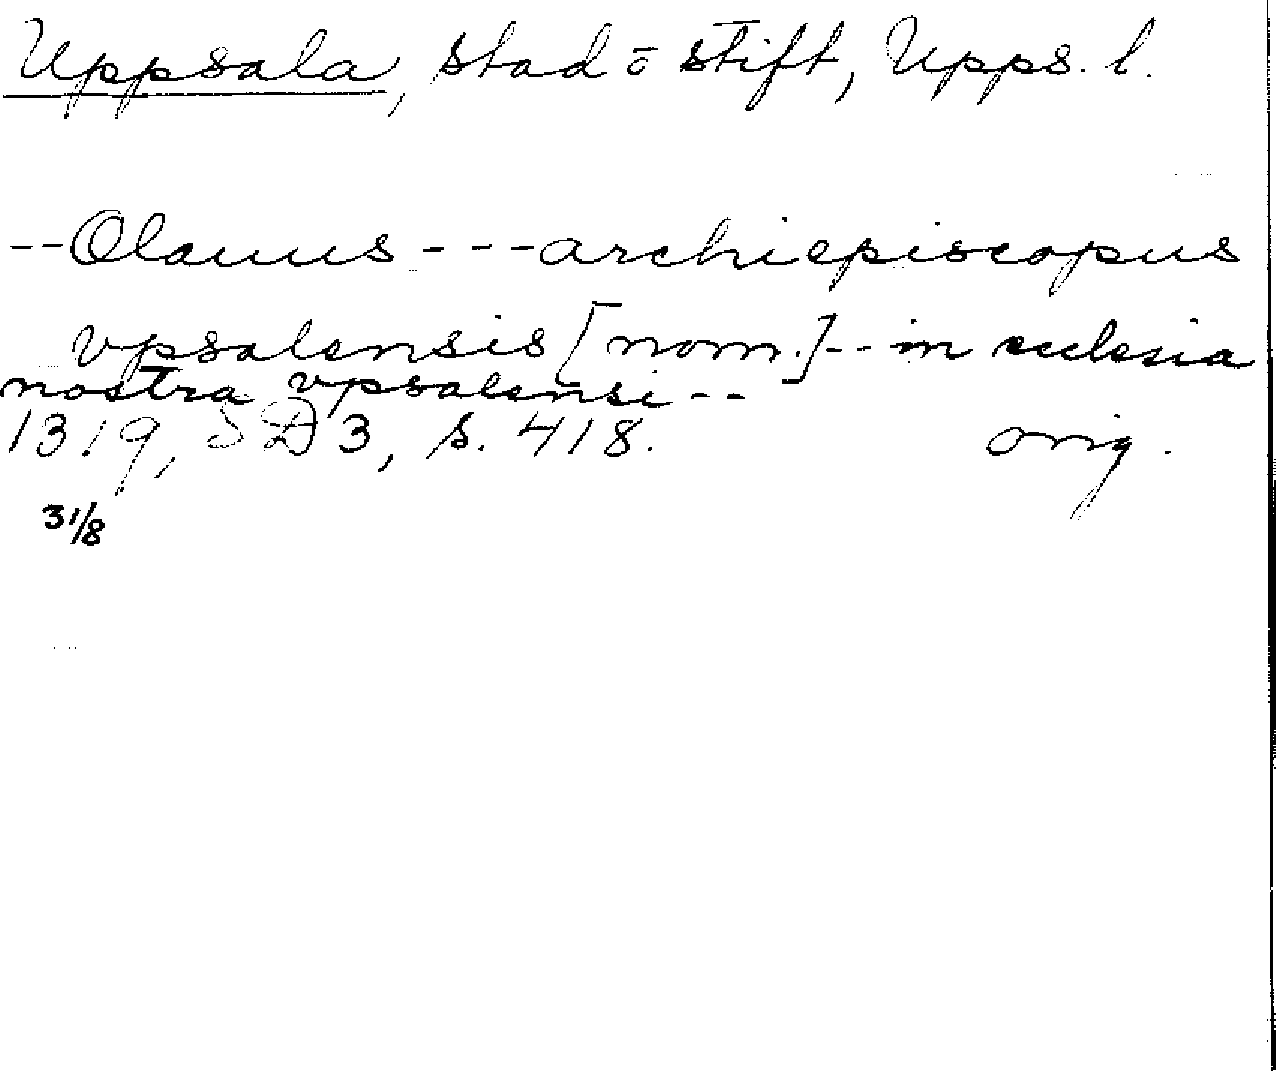 Uppsala, stad o stift, Upps. l.
-- Olauus --- archiepiscopus
vpsalensis [nom.] -- in ecclesia
nostra vpsalensi --
1319, SD 3, s. 418. orig.
31/8